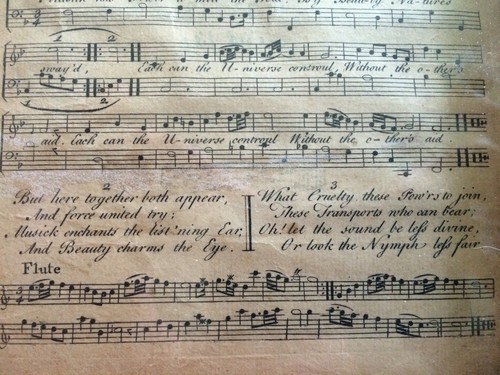 By Beauty Na-ture's
1 2
sway'd, Each can the U-niverse controul, Without the o-ther's
1 2
aid. Each can the U-niverse controul Without the o-ther's aid.
2
But here together both appear,
And force united try;
Musick enchants the list'ning Ear,
And Beauty charms the Eye.
3
What Cruelty these Pow'rs to join,
These Transports who can bear;
Oh! let the sound be leſs divine,
Or look the Nymph leſs fair
Flute